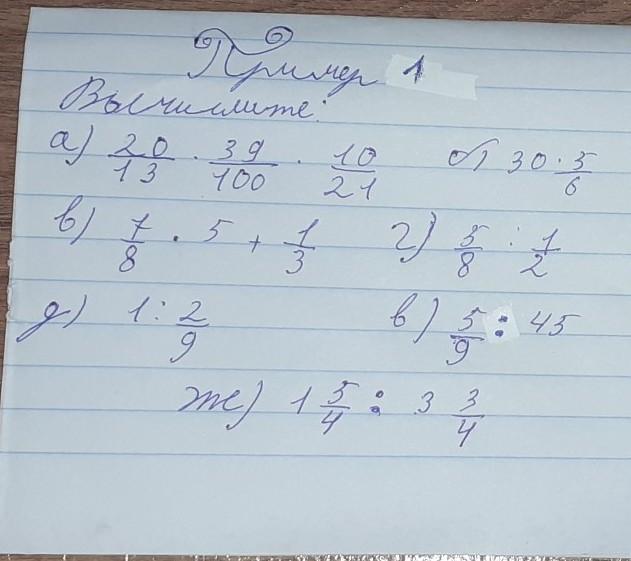 Пример 1
Вычислите:
а) 20/13 · 39/100 · 10/21 б) 30 · 5/6
в) 7/8 · 5 + 1/3 г) 5/8 : 1/2
д) 1 : 2/9 в) 5/9 : 45
ж) 1 5/4 : 3 3/4